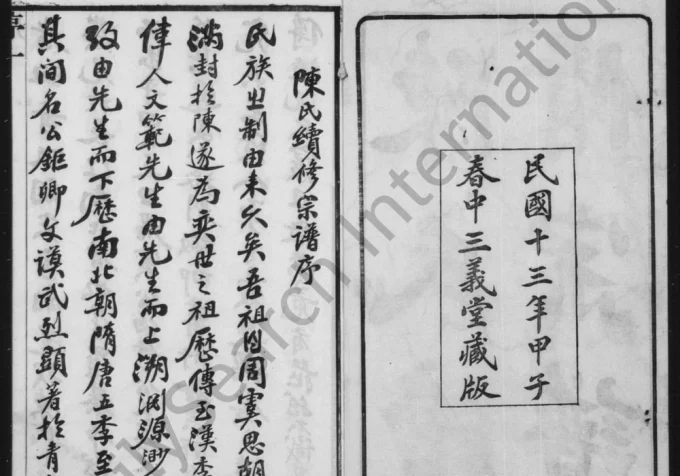 民國十三年甲子
春中三義堂藏版
陳氏續修宗譜序
氏族之制由来久矣吾祖自周虞思胡
滿封於陳遂為奕世之祖歷傳至漢季
偉人文範先生由先生而上溯淵源渺
致由先生而下歷南北朝隋唐五季至
其间名公鉅卿文謨武烈顯著於青
FamilySearch International